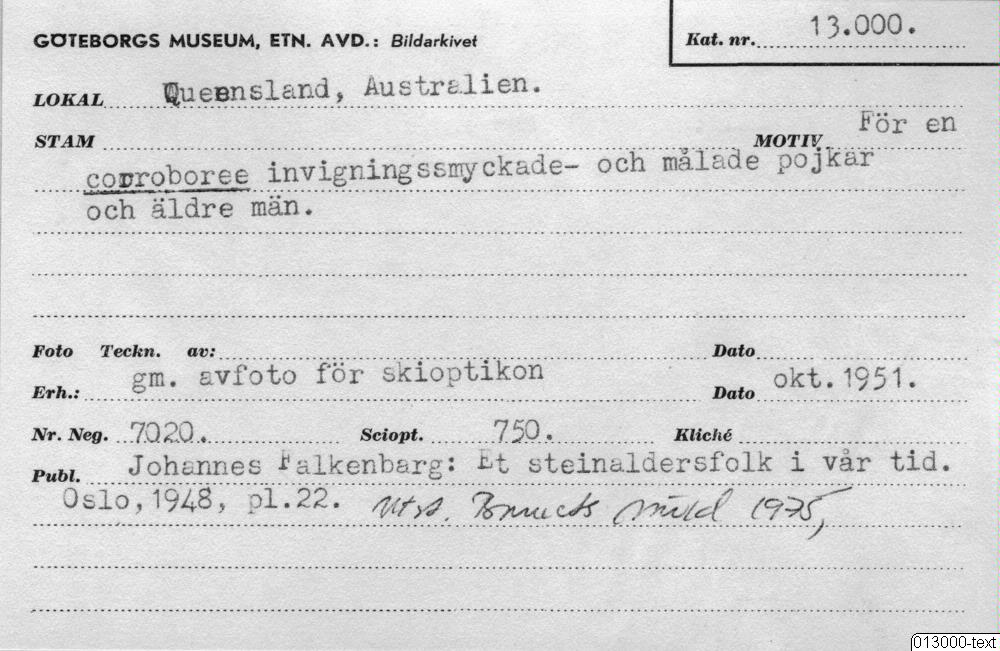 GÖTEBORGS MUSEUM, ETN. AVD.: Bildarkivet
Kat. nr. 13.000.
LOKAL Queensland, Australien.
STAM MOTIV För en
corroboree invigningssmyckade- och målade pojkar
och äldre män.
Foto Teckn. av: Dato
Erh.: gm. avfoto för skioptikon Dato okt.1951.
Nr. Neg. 7020. Sciopt. 750. Kliché
Publ. Johannes Falkenbarg: Et steinaldersfolk i vår tid.
Oslo,1948, pl.22. 1975,
013000-text